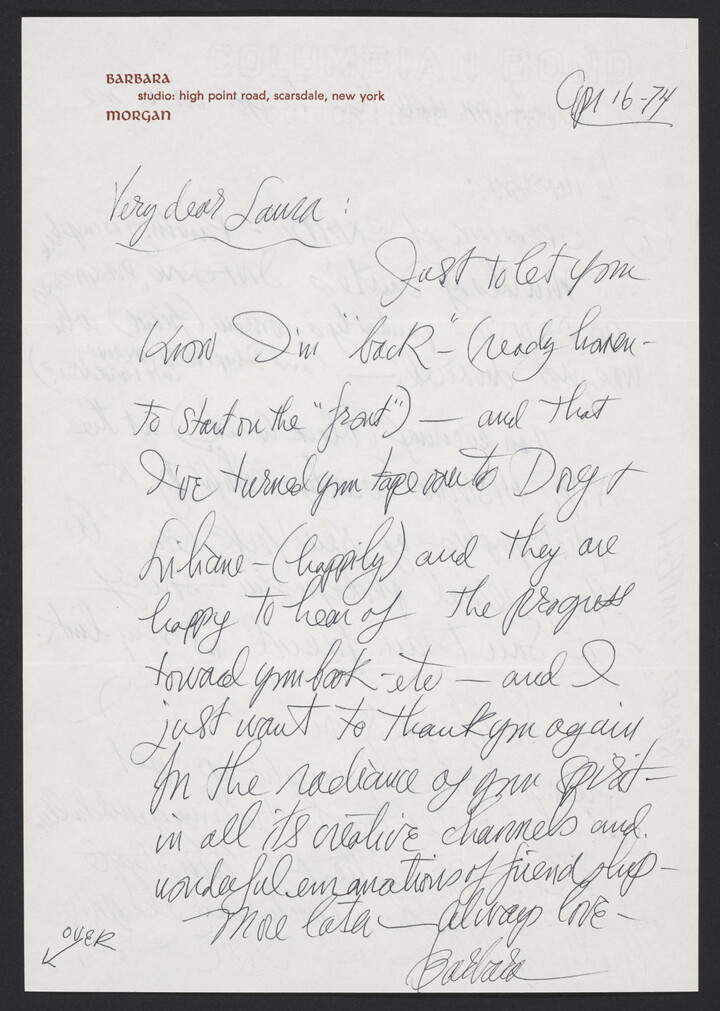 BARBARA
studio: high point road, scarsdale, new york
MORGAN
Apr 16-74
Very dear Laura:
Just to let you
know I'm "back" - (ready haven-
to start on the "front") — and that
I've turned your tape over to Doug +
Liliane - (happily) and they are
happy to hear of the progress
toward your book - etc — and I
just want to thank you again
for the radiance of your spirit -
in all its creative channels and
wonderful emanations of friendship -
More later — always love -
Barbara
OVER